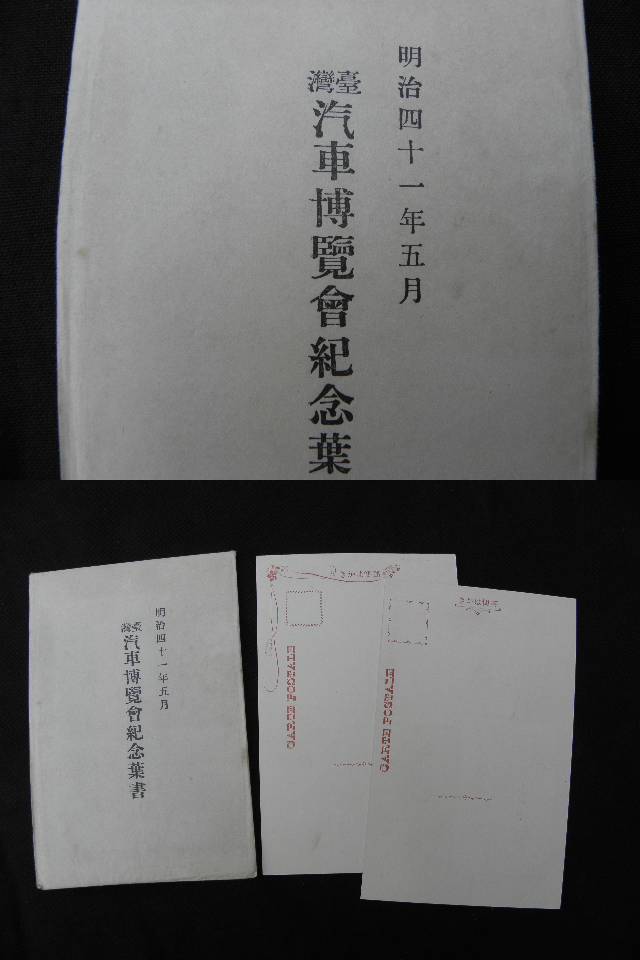 明治四十一年五月
臺灣
汽車博覽會紀念葉
明治四十一年五月
臺灣
汽車博覽會紀念葉書
きかは便郵
CARTE POSTALE
きかは便郵
CARTE POSTALE